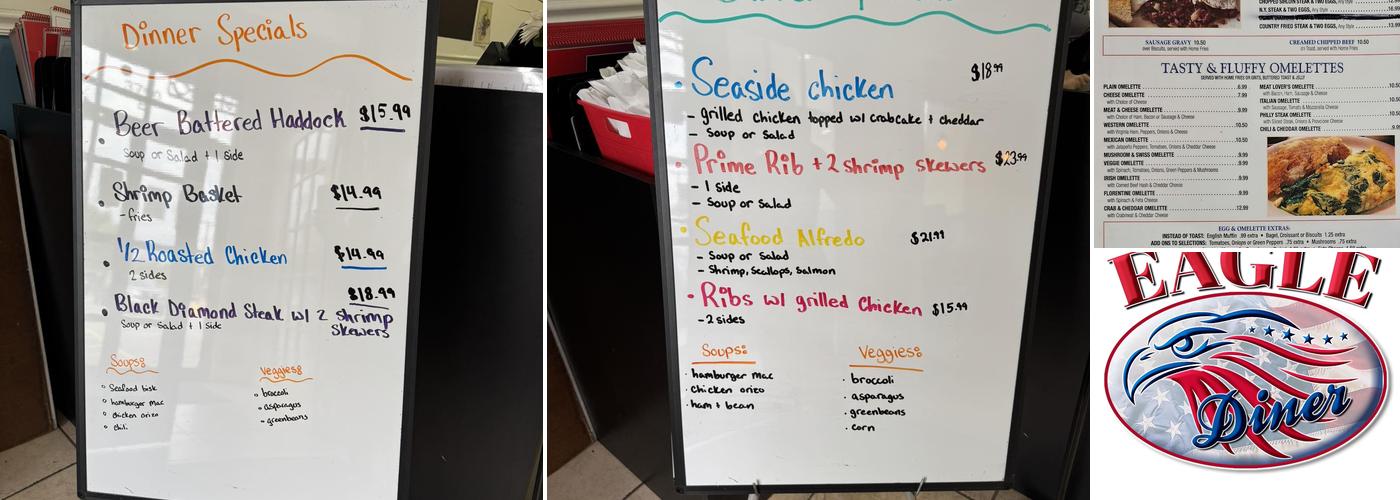 Dinner Specials
Beer Battered Haddock $15.99
Soup or Salad + 1 side
Shrimp Basket $14.99
- fries
1/2 Roasted Chicken $14.99
2 sides
$18.99
Black Diamond Steak w/ 2 shrimp
skewers
Soup or Salad + 1 side
Soups:
Seafood bisk
hamburger mac
chicken orizo
chili
Veggies:
broccoli
asparagus
greenbeans
Seaside chicken $18.99
- grilled chicken topped w/ crabcake + cheddar
- Soup or Salad
Prime Rib + 2 shrimp skewers $23.99
- 1 side
- Soup or Salad
Seafood Alfredo $21.99
- Soup or Salad
- Shrimp, Scallops, Salmon
Ribs w/ grilled Chicken $15.99
- 2 sides
Soups:
hamburger mac
chicken orizo
ham + bean
Veggies:
broccoli
asparagus
greenbeans
corn
N.Y. STEAK & TWO EGGS, Any Style
COUNTRY FRIED STEAK & TWO EGGS, Any Style
SAUSAGE GRAVY 10.50
over Biscuits, served with Home Fries
CREAMED CHIPPED BEEF 10.50
on Toast, served with Home Fries
TASTY & FLUFFY OMELETTES
SERVED WITH HOME FRIES OR GRITS, BUTTERED TOAST & JELLY
PLAIN OMELETTE 6.99
CHEESE OMELETTE 7.99
with Choice of Cheese
MEAT & CHEESE OMELETTE 9.99
with Choice of Ham, Bacon or Sausage & Cheese
WESTERN OMELETTE 10.50
with Virginia Ham, Peppers, Onions & Cheese
MEXICAN OMELETTE 10.50
with Jalapeño Peppers, Tomatoes, Onions & Cheddar Cheese
MUSHROOM & SWISS OMELETTE 9.99
VEGGIE OMELETTE 9.99
with Spinach, Tomatoes, Onions, Green Peppers & Mushrooms
IRISH OMELETTE 9.99
with Corned Beef Hash & Cheddar Cheese
FLORENTINE OMELETTE 9.99
with Spinach & Feta Cheese
CRAB & CHEDDAR OMELETTE 12.99
with Crabmeat & Cheddar Cheese
MEAT LOVER'S OMELETTE 10.50
with Bacon, Ham, Sausage & Cheese
ITALIAN OMELETTE 10.50
with Sausage, Tomato & Mozzarella Cheese
PHILLY STEAK OMELETTE 10.50
with Sliced Steak, Onions & Provolone Cheese
CHILI & CHEDDAR OMELETTE 9.99
EGG & OMELETTE EXTRAS:
INSTEAD OF TOAST: English Muffin .99 extra • Bagel, Croissant or Biscuits 1.25 extra
ADD ONS TO SELECTIONS: Tomatoes, Onions or Green Peppers .75 extra • Mushrooms .75 extra
EAGLE
Diner